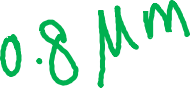 0.8 μm